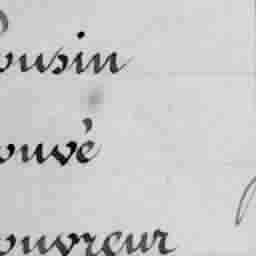 ousin
ouvé
ouvreur